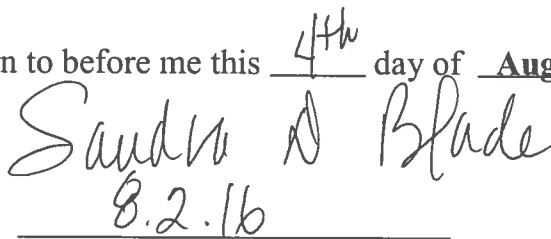 n to before me this 4th day of Aug
Sandra D Blade
8.2.16